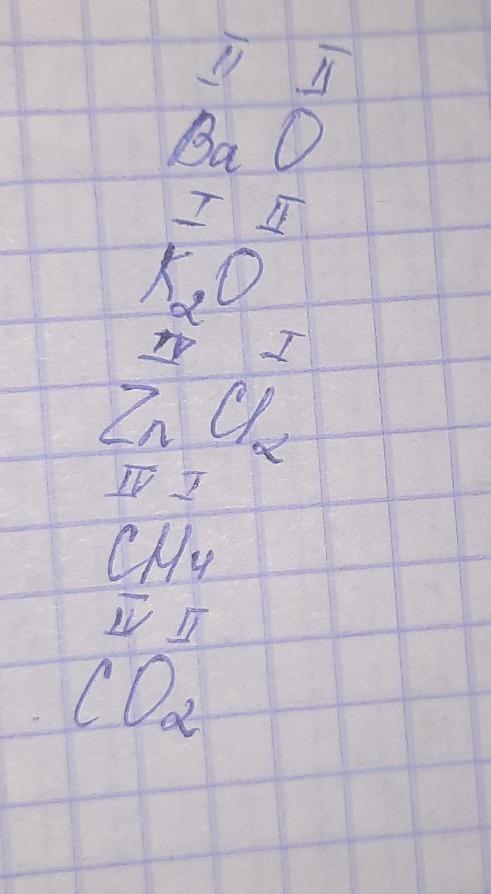 II II
Ba O
I II
K₂O
IV I
Zn Cl₂
IV I
CH₄
IV II
CO₂